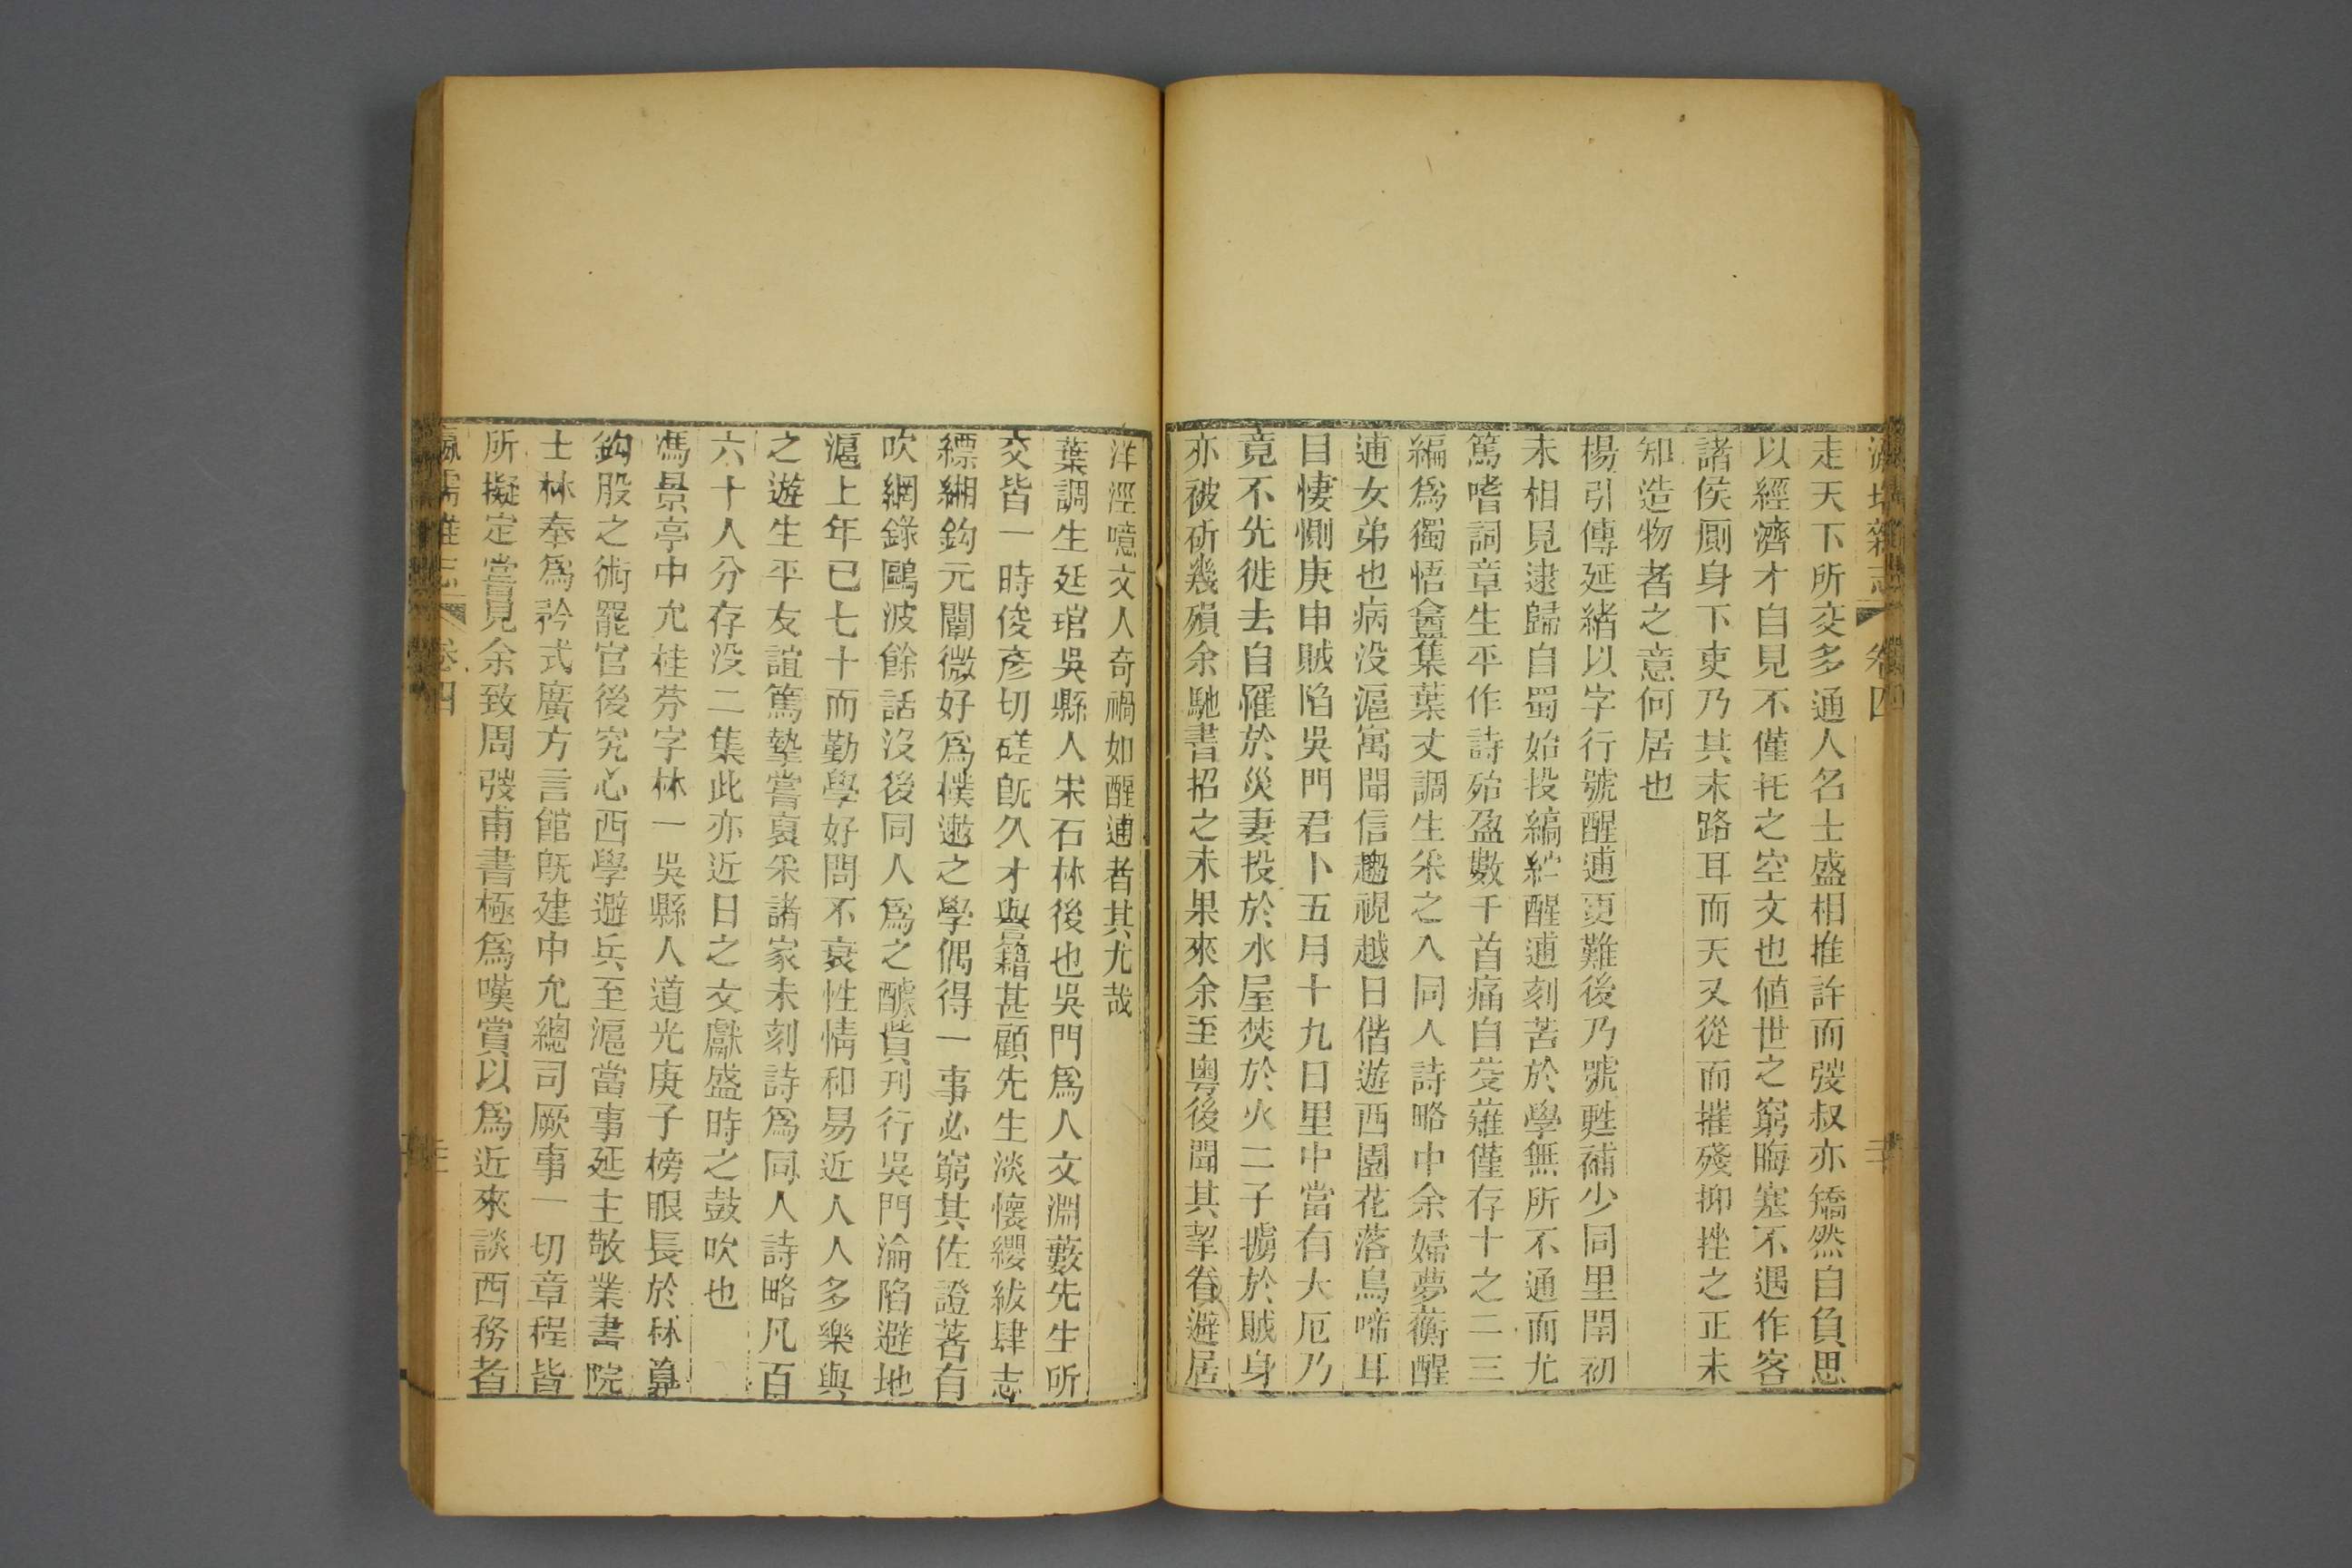 瀛壖雜志 卷四
走天下所交多通人名士盛相推許而弢叔亦矯然自負思
以經濟才自見不僅托之空文也値世之窮晦塞不遇作客
諸侯廁身下吏乃其末路耳而天又從而摧殘抑挫之正未
知造物者之意何居也
楊引傳延緒以字行號醒逋更難後乃號甦補少同里閈初
未相見逮歸自蜀始投縞紵醒逋刻苦於學無所不通而尤
篤嗜詞章生平作詩殆盈數千首痛自芟薙僅存十之二三
編爲獨悟盦集葉丈調生采之入同人詩略中余婦夢蘅醒
逋女弟也病没滬寓聞信趨視越日偕遊西園花落鳥啼耳
目悽惻庚申賊陷吳門君卜五月十九日里中當有大厄乃
竟不先徙去自罹於災妻投於水屋焚於火二子擄於賊身
亦被斫幾殞余馳書招之未果來余至粵後聞其挈眷避居
洋涇噫文人奇禍如醒逋者其尤哉
葉調生廷琯吳縣人宋石林後也吳門爲人文淵藪先生所
交皆一時俊彥切磋旣久才譽籍甚顧先生淡懷纓紱肆志
縹緗鈎元闡微好爲樸遬之學偶得一事必窮其佐證著有
吹網錄鷗波餘話没後同人爲之醵貲刋行吳門淪陷避地
滬上年已七十而勤學好問不衰性情和易近人人多樂與
之遊生平友誼篤摯嘗裒采諸家未刻詩爲同人詩略凡百
六十人分存没二集此亦近日之文獻盛時之鼓吹也
馮景亭中允桂芬字林一吳縣人道光庚子榜眼長於林算
鈎股之術罷官後究心西學避兵至滬當事延主敬業書院
士林奉爲矜式廣方言館旣建中允總司厥事一切章程皆
所擬定嘗見余致周弢甫書極爲嘆賞以爲近來談西務者
瀛壖雜志 卷四